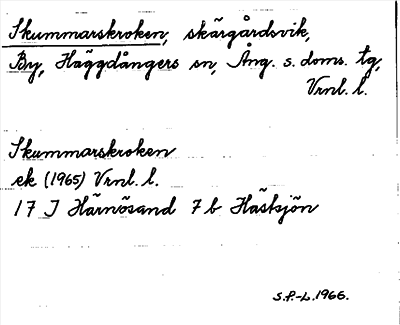 Skummarskroken, skärgårdsvik,
By, Häggdångers sn, Ång. s. doms. tg,
Vrnl. l.
Skummarskroken
ek (1965) Vrnl. l.
17 J Härnösand 7 b Hästsjön
S.P.-L. 1966.